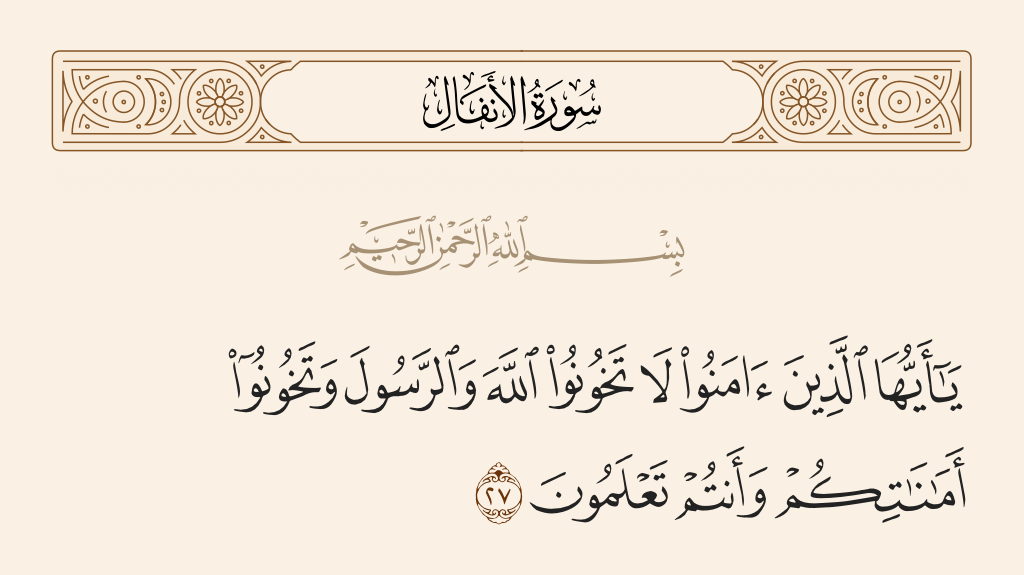 سُورَةُ الأَنفَالِ
بِسْمِ ٱللَّهِ ٱلرَّحْمَٰنِ ٱلرَّحِيمِ
يَٰٓأَيُّهَا ٱلَّذِينَ ءَامَنُوا۟ لَا تَخُونُوا۟ ٱللَّهَ وَٱلرَّسُولَ وَتَخُونُوٓا۟
أَمَٰنَٰتِكُمْ وَأَنتُمْ تَعْلَمُونَ ٢٧